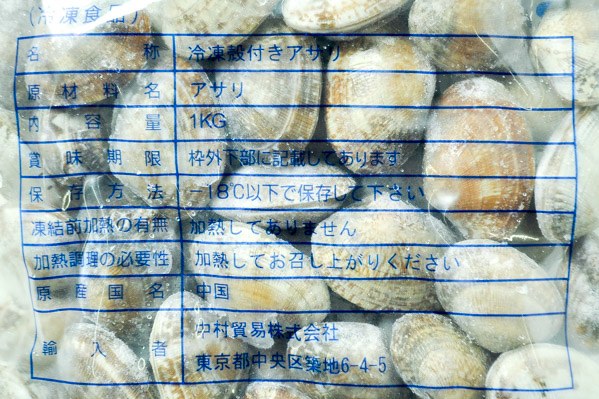 (冷凍食品)
名称 冷凍殻付きアサリ
原材料名 アサリ
内容量 1KG
賞味期限 枠外下部に記載してあります
保存方法 −18℃以下で保存して下さい
凍結前加熱の有無 加熱してありません
加熱調理の必要性 加熱してお召し上がりください
原産国名 中国
輸入者 中村貿易株式会社
東京都中央区築地6-4-5